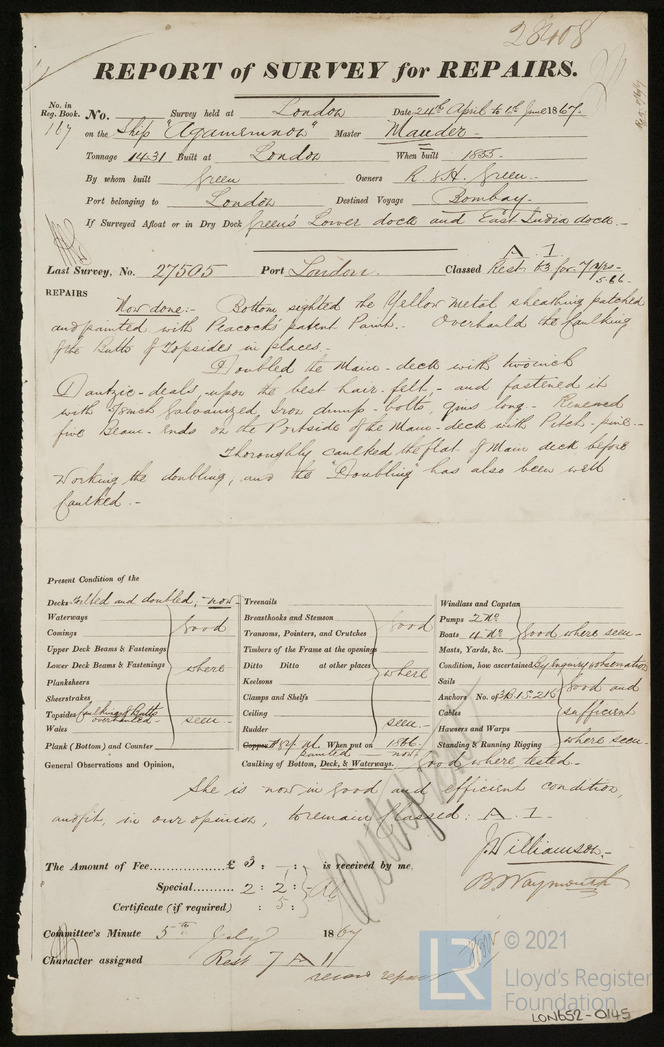 28408
REPORT of SURVEY for REPAIRS.
No. in
Reg. Book.
167
No. Survey held at London Date, 24th April to 1st June 1867.
on the Ship "Agamemnon" Master Mauder
Tonnage 1431 Built at London When built 1855
By whom built Green Owners R & H. Green
Port belonging to London Destined Voyage Bombay.
If Surveyed Afloat or in Dry Dock Green's Lower dock and East India dock.
Last Survey, No. 27505 Port London. Classed A 1 Rest. 63 for 7 yrs 5.66
REPAIRS
Now done:- Bottom sighted the Yellow metal sheathing patched
and painted with Peacock's patent Paint. Overhauld the Caulking
of the Butts of Topsides in places.
Doubled the Main-deck with two inch
Dantzic-deals, upon the best hair-felt, and fastened it
with 7/8 inch Galvanized Iron dump-bolts, 9ins long. Renewed
five Beam-ends on the Portside of the Main-deck with Pitch-pine.
Thoroughly caulked the flat of Main deck before
working the doubling, and the "Doubling" has also been well
Caulked.
Present Condition of the
Decks Felted and doubled, now
Waterways
Comings
Upper Deck Beams & Fastenings
Lower Deck Beams & Fastenings
Planksheers
Sheerstrakes
Topsides Caulking of Butts overhauled
Wales
Plank (Bottom) and Counter
good where seen
Treenails
Breasthooks and Stemson
Transoms, Pointers, and Crutches
Timbers of the Frame at the openings
Ditto Ditto at other places
Keelsons
Clamps and Shelfs
Ceiling
Rudder
good where seen
Copper When put on 1866
painted now
Caulking of Bottom, Deck, & Waterways. Good where tested
Windlass and Capstan
Pumps 2 No
Boats 4 No
Masts, Yards, &c.
Good where seen
Condition, how ascertained By Enquiry & observation
Sails
Anchors No. of 3B 1S 2K
Cables
Hawsers and Warps
Standing & Running Rigging
Good and sufficient where seen
General Observations and Opinion,
She is now in good and efficient condition,
and fit, in our opinion, to remain Classed: A. 1
J. Williamson
B. Waymouth
The Amount of Fee £ 3 : - : is received by me,
Special 2 : 2 :
Certificate (if required) : 5 :
Committee's Minute 5th July 1867
Character assigned Rest 7 A 1
record repairs
LR © 2021
Lloyd's Register
Foundation
LON652-0145